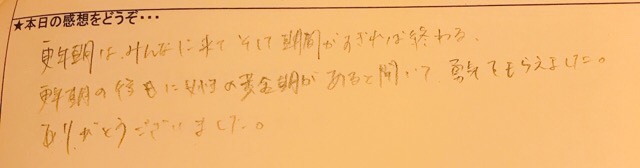 ★本日の感想をどうぞ・・・
更年期は、みんなに来て そして期間がすぎれば終わる。
更年期の後にも女性の黄金期があると聞いて 勇気をもらえました。
ありがとうございました。